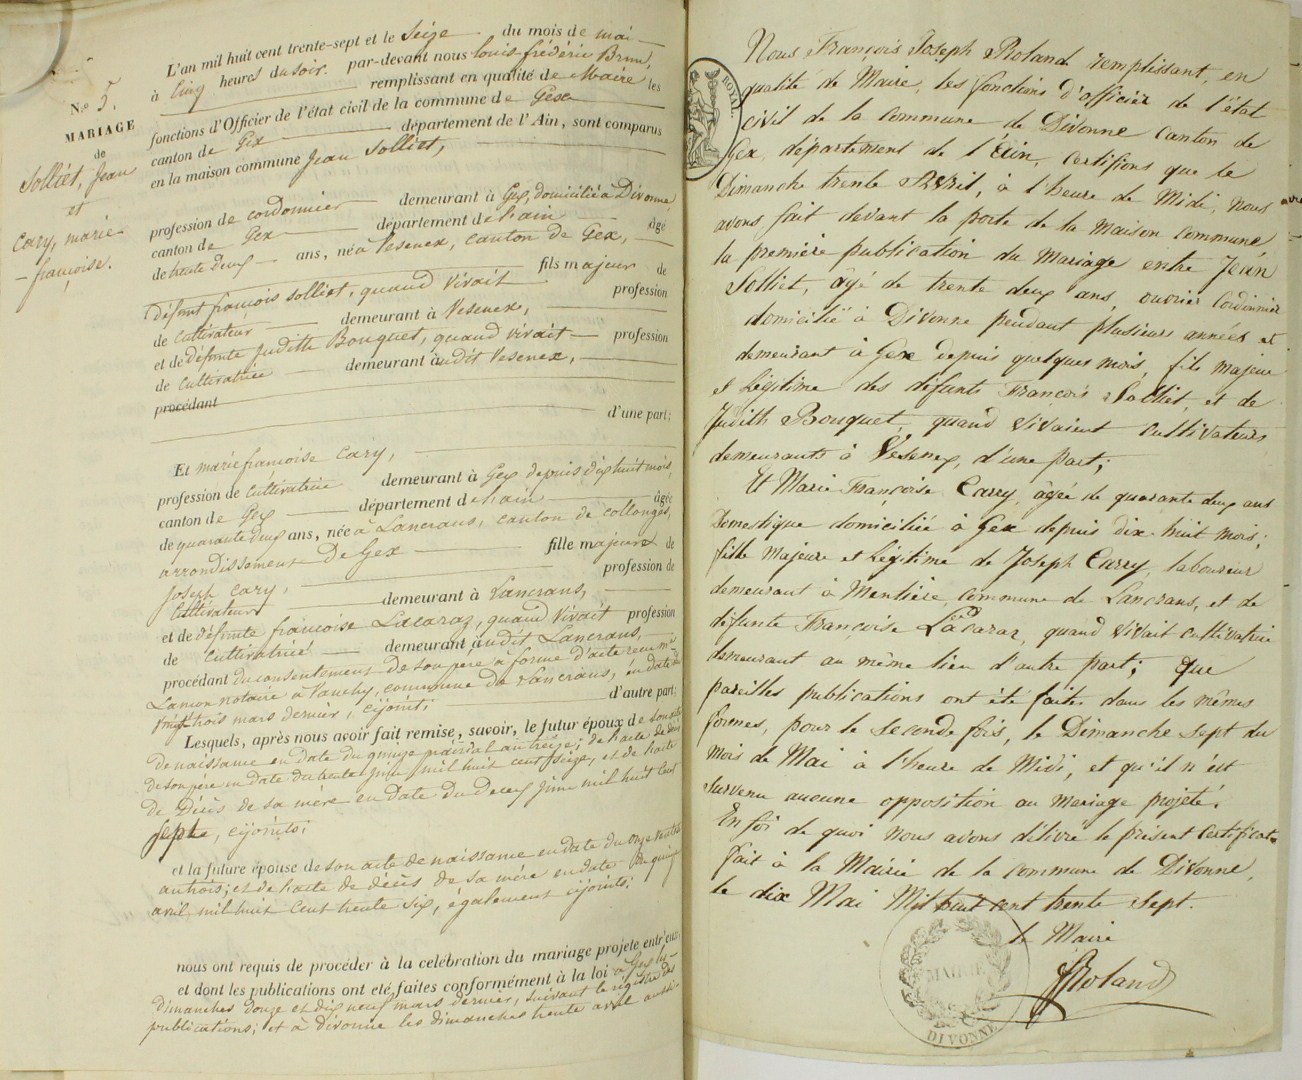 N.o 5.
MARIAGE
de
Solliet, Jean
et
Cary, marie
-françoise.
L'an mil huit cent trente-sept et le Seize du mois de mai
à Cinq heures du soir. par-devant nous louis frédéric Brun,
remplissant en qualité de Maire les
fonctions d'Officier de l'état civil de la commune de Gex
canton de Gex département de l'Ain, sont comparus
en la maison commune Jean Solliet,
profession de cordonnier demeurant à Gex, domicilié à Divonne,
canton de Gex département de l'ain âgé
de trente deux ans, né à Vesenex, canton de Gex,
fils majeur de
défunt françois solliet, quand vivait profession
de cultivateur demeurant à Vesenex,
et de défunte Judith Bouquet, quand vivait profession
de cultivatrice demeurant audit Vesenex,
procédant
d'une part;
Et marie françoise Cary,
profession de Cultivatrice demeurant à Gex depuis dix huit mois,
canton de Gex département de l'ain âgée
de quarante deux ans, née à Lancrans, canton de collonges,
arrondissement De Gex fille majeure de
joseph Cary, profession de
Cultivateur demeurant à Lancrans,
et de défunte françoise Lacaraz, quand vivait profession
de cultivatrice demeurant audit Lancrans,
procédant du consentement de son père à forme d'acte reçu me
Lamon notaire à Vanchy, commune de Lancrans, en date du
vingt trois mars dernier, cijoint; d'autre part;
Lesquels, après nous avoir fait remise, savoir, le futur époux de son acte
de naissance en date du quinze prairial an treize; de l'acte de décès
de son père en date du trente juin mil huit cent seize, et de l'acte
de Décès de sa mère en date du deux juin mil huit cent
sept, cijoints;
et la future épouse de son acte de naissance en date du onze
an trois; et de l'acte de décès de sa mère en date du quinze
avril mil huit cent trente six, également cijoints.
nous ont requis de procéder à la célébration du mariage projeté entr'eux,
et dont les publications ont été faites conformément à la loi à Gex les
dimanches douze et dix neuf mars dernier, suivant le registre des
publications; et à divonne les dimanches trente avril
ROYAL.
Nous François Joseph Roland remplissant, en
qualité de Maire, les fonctions d'officier de l'état
civil de la Commune de Divonne Canton de
Gex, département de l'Ain, certifions que le
Dimanche trente Avril, à l'heure de Midi, nous
avons fait devant la porte de la Maison commune
la première publication du Mariage entre Jean
Solliet, âgé de trente deux ans, ouvrier Cordonnier
domicilié à Divonne pendant plusieurs années et
demeurant à Gex depuis quelques mois, fils majeur
et Légitime des défunts François Solliet et de
Judith Bouquet, quand vivaient cultivateurs
demeurants à Vesenex, d'une part;
Et Marie Françoise Carry âgée de quarante deux ans
Domestique domiciliée à Gex depuis dix huit mois;
fille Majeure et Légitime de Joseph Carry, laboureur
demeurant à Mentière, commune de Lancrans, et de
défunte Françoise Lacaraz, quand vivait cultivatrice
demeurant au même lieu d'autre part; Que
pareilles publications ont été faites dans les mêmes
formes, pour la seconde fois, le Dimanche sept du
mois de Mai à l'heure de Midi, et qu'il n'est
survenu aucune opposition au Mariage projeté.
En foi de quoi nous avons délivré le présent Certificat.
fait à la Mairie de la Commune de Divonne,
le dix Mai Mil huit cent trente Sept.
le Maire
MAIRIE
DIVONNE
Roland